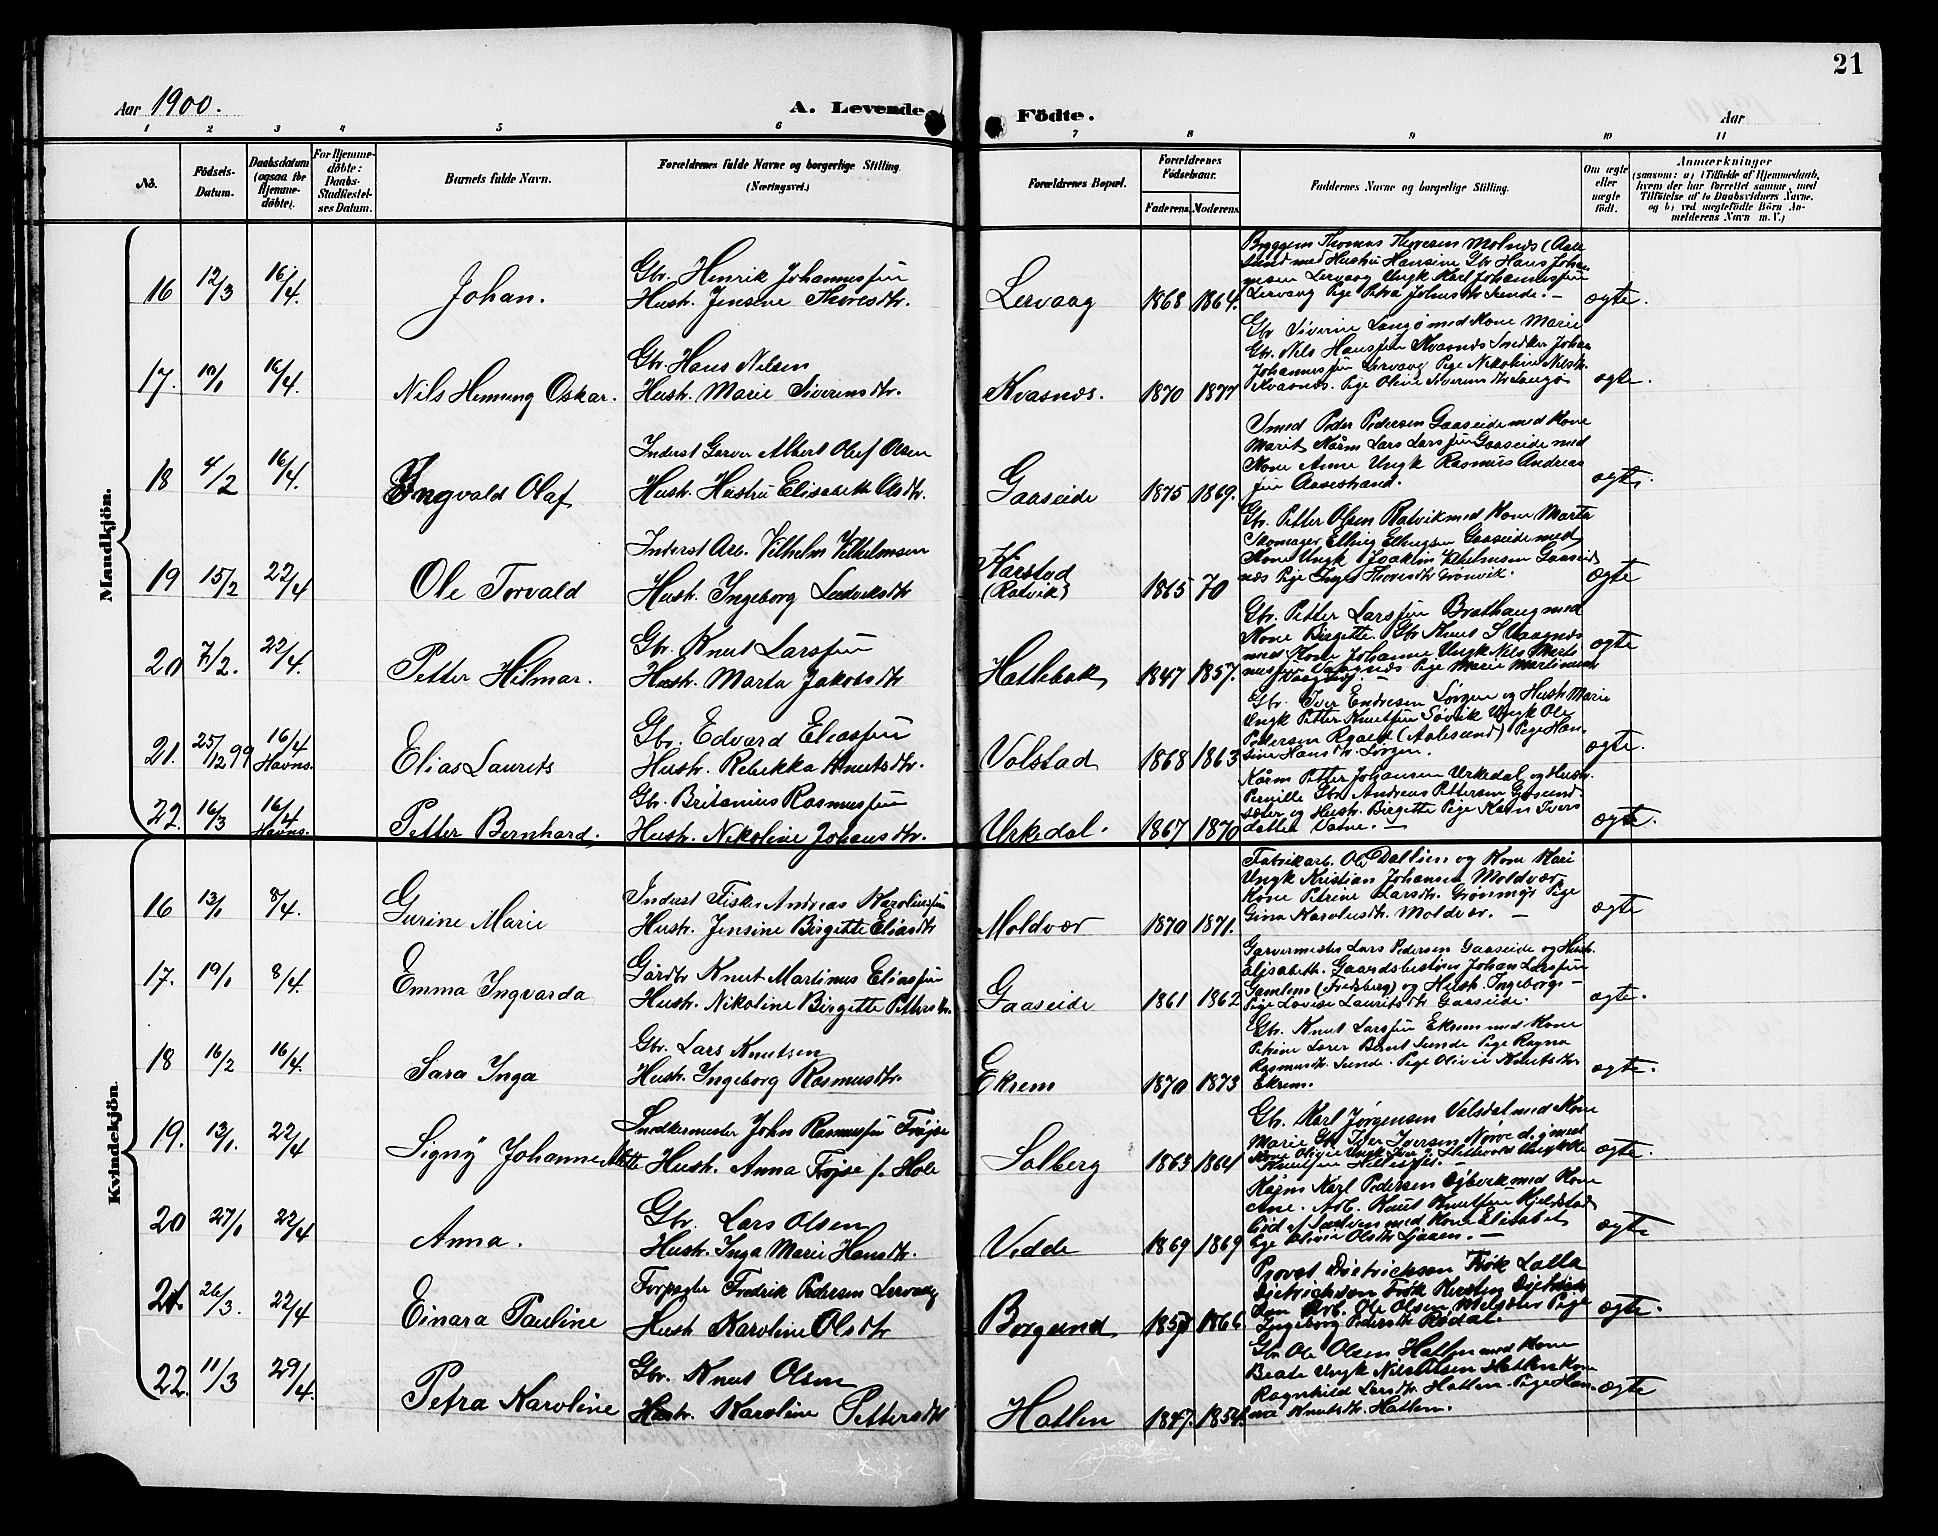 21
Aar 1900.
A. Levende Födte.
Aar
1 2 3 4 5 6 7 8 9 10 11
No.
Födsels-
Datum.
Daabsdatum
(ogsaa for
Hjemme-
döbte).
For Hjemme-
döbte:
Daabs-
Stadfæstel-
ses Datum.
Barnets fulde Navn.
Forældrenes fulde Navne og borgerlige Stilling.
(Næringsvei.)
Forældrenes Bopæl.
Forældrenes
Födselsaar.
Faderens. Moderens.
Faddernes Navne og borgerlige Stilling.
Om ægte
eller
uægte
født.
Anmærkninger
(saasom: a) i Tilfælde af Hjemmedaab,
hvem der har forrettet samme, med
Tilföielse af to Daabsvidners Navne,
og b) ved uægtefödte Börn An-
melderens Navn m. V.)
Mandkjön.
16 12/3 16/4 Johan.
Gbr. Henrik Johannessen
Hustr. Jensine Thoresdtr.
Lervaag 1868 1864.
Thomas Thoresen Molnes (Aale
sund) med Hustru Hansine Gbr Hans Johan
nesen Lervaag Ungk Karl Johannessen
Lervaag Pige Petra Johnsdtr Sunde. —
ægte.
17. 10/1 16/4 Nils Henning Oskar.
Gbr. Hans Nilsen
Hustr. Marie Siverinsdtr.
Kvasnes. 1870 1877
Gbr Siverin Langø med Kone Marie
Gbr. Nils Hanssen Kvasnes Snedker Johan
Johannessen Lervaag Pige Nikoline Nilsdtr
Kvasnes. Pige Olive Siverinsdtr Langø
ægte.
18 4/2 16/4 Ingvald Olaf
Inderst Garver Albert Oluf Olsen
Hustr. Hustru Elisabeth Olsdtr.
Gaaseide 1875 1869.
Smed Peder Pedersen Gaaseide med Kone
Marit Kårm Lars Larssen Gaaseide med
Kone Anne Ungk Rasmus Andreas
sen Aasestrand.
ægte.
19 15/2 22/4 Ole Torvald
Inderst Arb. Vilhelm Vilhelmsen
Hustr. Ingeborg Ludviksdtr
Karstad
(Ratvik) 1865 70
Gbr. Petter Olsen Ratvik med Kone Marta
Skomager Elling Ellingsen Gaaseide med
Kone Ungk Joakim Vilhelmsen Gaaseid
nes Pige Inga Thoresdtr Grønvik.
ægte
20 7/2. 22/4 Petter Hilmar.
Gbr. Knut Larssen
Hustr. Marta Jakobsdtr
Hatlebak 1847 1857.
Gbr. Petter Larssen Brathaug med
Kone Birgitte. Gbr Knut S Vaagnes
med Kone Johanne Ungk Nils Marti
nussen Vaagnes Pige Marie Martinusdtr
ægte
21. 25/12 99 16/4
Havns. Elias Laurits
Gbr. Edvard Eliassen
Hustr. Rebekka Knutsdtr.
Volstad 1868 1863
Gbr. Iver Endresen Sørgen og Hustr. Marie
Ungk Petter Knutssen Søvik Ungk Ole
Pedersen (Aalesund) Pige Han-
sine Hansdtr Sørgen.
ægte.
22. 16/3 16/4
Havns. Petter Bernhard.
Gbr. Britanius Rasmussen
Hustr. Nikoline Johansdtr.
Urkedal. 1867 1870
Kårm Petter Johansen Urkedal og Hustr.
Pernille Gbr. Andreas Pettersen Grøsund
sæter og Hustr. Birgitte Pige Karn Ivers
datter Vatne. —
ægte.
Kvindekjön
16 13/1 8/4. Gurine Marie
Inderst Fisker Andreas Karoliussen
Hustr. Jensine Birgitte Eliasdtr
Moldvær 1870 1871.
Fabrikarb. Ole Dallien og Kone Kari
Ungk Kristian Johansen Moldvær
Kone Petrine Larsdtr. Grønmyr Pige
Gina Karolusdtr. Moldvær. —
ægte
17. 19/1 8/4. Emma Ingvarda
Gårdbr Knut Martinus Eliassen
Hustr. Nikoline Birgitte Pettersdtr.
Gaaseide 1861 1862
Garvermester Lars Pedersen Gaaseide og Hustr.
Elisabeth. Gaardsbestyrer Johan Larssen
Gamlem (Fredsberg) og Hustr. Ingeborg -
Pige Lovise Lauritsdtr Gaaseide.
ægte.
18 16/2 16/4. Sara Inga
Gbr. Lars Knutsen
Hustr. Ingeborg Rasmusdtr.
Ekrem 1870 1873
Gbr. Knut Larssen Ekrem med Kone
Petrine Lærer Bernt Sunde Pige Ragna
Rasmusdtr Sunde. Pige Olivie Knutsdtr
Ekrem.
ægte.
19. 13/1. 22/4 Signy Johanne Mette
Snedkermester John Rasmussen Frøise
Hustr. Anna Frøise f. Hole
Solberg 1863 1864
Gbr. Karl Jørgensen Valsdal med Kone
Marie Gbr Iver Iversen Nørve d. y. med
Kone Olivie Ungk Iver
Knutsen —
ægte.
20 27/1 22/4 Anna.
Gbr. Lars Olsen
Hustr. Inga Marie Hansdtr.
Vedde 1869 1869
Karl Pedersen med Kone
Ane. Arb. Knut Knutssen Kjelstad
med Kone Elisabet
Pige Olivie Olsdtr. —
ægte
21. 26/3. 22/4 Einara Pauline
Forpagter Fredrik Pedersen Lervaag
Hustr Karoline Olsdtr
Borgund 1857 1866
Provst Dietrichsen Frøk Lalla
Dietrichson Frøk Kirsten Dietrich
son Arb. Ole Olsen Pige
Ingeborg Pedersdtr Rødal.
ægte.
22. 11/3 29/4. Petra Karoline
Gbr. Knut Olsen
Hustr. Karoline Pettersdtr
Hatlen 1847. 1854.
Gbr Ole Olsen Hatlen med Kone
Beate Ungk Nils Olsen Hatlen Kone
Ragnhild Larsdtr. Hatlen. Pige Han-
na Knutsdtr. Hatlen.
ægte